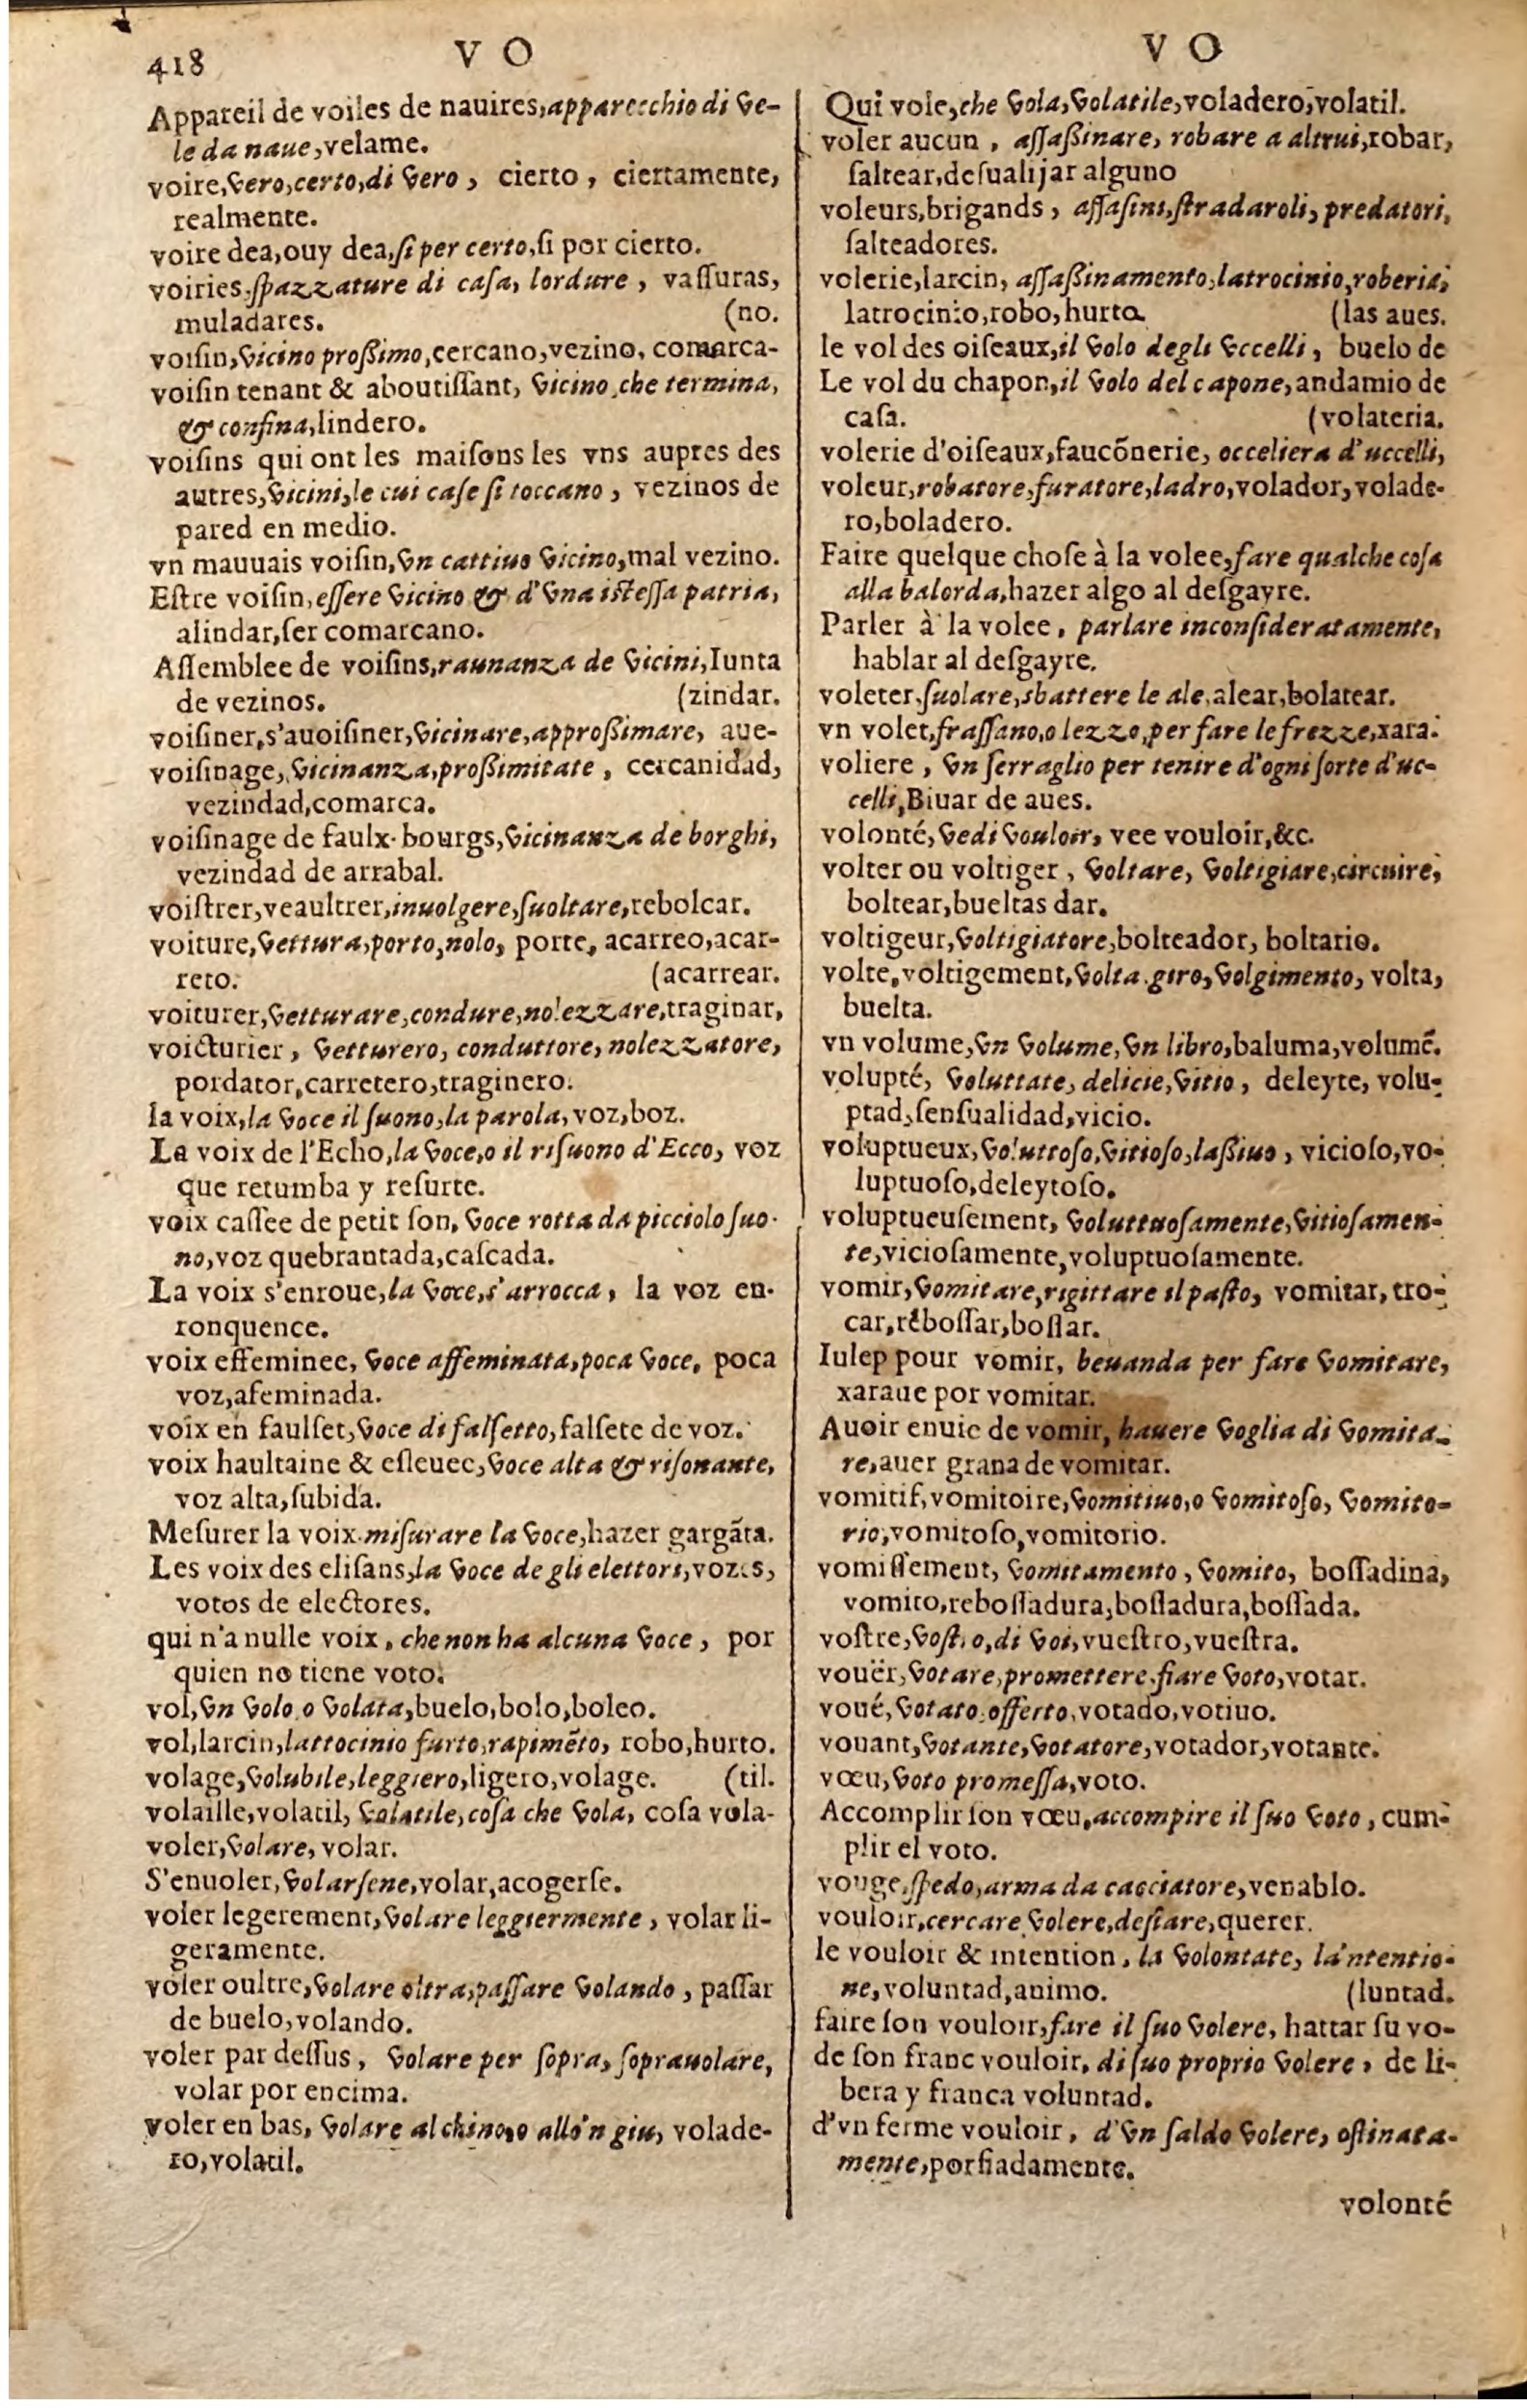 418 V O
Appareil de voiles de nauires, apparecchio di ve-
le da naue, velame.
voire, vero, certo, di vero, cierto, ciertamente,
realmente.
voire dea, ouy dea, ſi per certo, ſi por cierto.
voiries, ſpazzature di caſa, lordure, vaſſuras,
muladares. (no.
voiſin, vicino proßimo, cercano, vezino, comarca-
voiſin tenant & aboutiſſant, vicino, che termina,
& confina, lindero.
voiſins qui ont les maiſons les vns aupres des
autres, vicini, le cui caſe ſi toccano, vezinos de
pared en medio.
vn mauuais voiſin, vn cattiuo vicino, mal vezino.
Eſtre voiſin, eſſere vicino & d'vna iſteſſa patria,
alindar, ſer comarcano.
Aſſemblee de voiſins, raunanza de vicini, Iunta
de vezinos. (zindar.
voiſiner, s'auoiſiner, vicinare, approßimare, aue-
voiſinage, vicinanza, proßimitate, cercanidad,
vezindad, comarca.
voiſinage de faulx-bourgs, vicinanza de borghi,
vezindad de arrabal.
voiſtrer, veaultrer, inuolgere, ſuoltare, rebolcar.
voiture, vettura, porto, nolo, porte, acarreo, acar-
reto. (acarrear.
voiturer, vetturare, condure, nolezzare, traginar,
voicturier, vetturero, conduttore, nolezzatore,
pordator, carretero, traginero.
la voix, la voce il ſuono, la parola, voz, boz.
La voix de l'Echo, la voce, o il riſuono d'Ecco, voz
que retumba y reſurte.
voix caſſee de petit ſon, voce rotta da picciolo ſuo-
no, voz quebrantada, caſcada.
La voix s'enroue, la voce, s'arrocca, la voz en-
ronquence.
voix effeminee, voce affeminata, poca voce, poca
voz, afeminada.
voix en faulſet, voce di falſetto, falſete de voz.
voix haultaine & eſleuee, voce alta & riſonante,
voz alta, ſubida.
Meſurer la voix. miſurare la voce, hazer gargãta.
Les voix des eliſans, la voce de gli elettori, vozes,
votos de electores.
qui n'a nulle voix, che non ha alcuna voce, por
quien no tiene voto.
vol, vn volo, o volata, buelo, bolo, boleo.
vol, larcin, lattocinio furto, rapimẽto, robo, hurto.
volage, volubile, leggiero, ligero, volage. (til.
volaille, volatil, volatile, coſa che vola, coſa vola-
voler, volare, volar.
S'enuoler, volarſene, volar, acogerſe.
voler legerement, volare leggiermente, volar li-
geramente.
voler oultre, volare oltra, paſſare volando, paſſar
de buelo, volando.
voler par deſſus, volare per ſopra, ſoprauolare,
volar por encima.
voler en bas, volare al chino, o allo'n giu, volade-
ro, volatil.
V O
Qui vole, che vola, volatile, voladero, volatil.
voler aucun, aſſaßinare, robare a altrui, robar,
ſaltear, deſualijar alguno
voleurs, brigands, aſſaſini, ſtradaroli, predatori,
ſalteadores.
volerie, larcin, aſſaßinamento, latrocinio, roberia,
latrocinio, robo, hurto. (las aues.
le vol des oiſeaux, il volo degli vccelli, buelo de
Le vol du chapon, il volo del capone, andamio de
caſa. (volateria.
volerie d'oiſeaux, faucõnerie, occeliera d'uccelli,
voleur, robatore, furatore, ladro, volador, volade-
ro, boladero.
Faire quelque choſe à la volee, fare qualche coſa
alla balorda, hazer algo al deſgayre.
Parler à la volee, parlare inconſideratamente,
hablar al deſgayre.
voleter, ſuolare, sbattere le ale, alear, bolatear.
vn volet, fraſſano, o lezzo, per fare le frezze, xara.
voliere, vn ſerraglio per tenire d'ogni ſorte d'uc-
celli, Biuar de aues.
volonté, vedi vouloir, vee vouloir, &c.
volter ou voltiger, voltare, voltigiare, circuire,
boltear, bueltas dar.
voltigeur, voltigiatore, bolteador, boltario.
volte, voltigement, volta, giro, volgimento, volta,
buelta.
vn volume, vn volume, vn libro, baluma, volumẽ.
volupté, voluttate, delicie, vitio, deleyte, volu-
ptad, ſenſualidad, vicio.
voluptueux, voluttoſo, vitioſo, laßiuo, vicioſo, vo-
luptuoſo, deleytoſo.
voluptueuſement, voluttuoſamente, vitioſamen-
te, vicioſamente, voluptuoſamente.
vomir, vomitare, rigittare il paſto, vomitar, tro-
car, reboſſar, boſſar.
Iulep pour vomir, beuanda per fare vomitare,
xaraue por vomitar.
Auoir enuie de vomir, hauere voglia di vomita-
re, auer grana de vomitar.
vomitif, vomitoire, vomitiuo, o vomitoſo, vomito-
rio, vomitoſo, vomitorio.
vomiſſement, vomitamento, vomito, boſſadina,
vomito, reboſſadura, boſſadura, boſſada.
voſtre, voſtro, di voi, vueſtro, vueſtra.
vouër, votare, promettere, fiare voto, votar.
voué, votato, offerto, votado, votiuo.
vouant, votante, votatore, votador, votante.
vœu, voto promeſſa, voto.
Accomplir ſon vœu, accompire il ſuo voto, cum-
plir el voto.
vouge, ſpedo, arma da cacciatore, venablo.
vouloir, cercare volere, deſiare, querer.
le vouloir & intention, la volontate, la'ntentio-
ne, voluntad, animo. (luntad.
faire ſon vouloir, fare il ſuo volere, hattar ſu vo-
de ſon franc vouloir, di ſuo proprio volere, de li-
bera y franca voluntad.
d'vn ferme vouloir, d'vn ſaldo volere, oſtinata-
mente, porfiadamente.
volonté